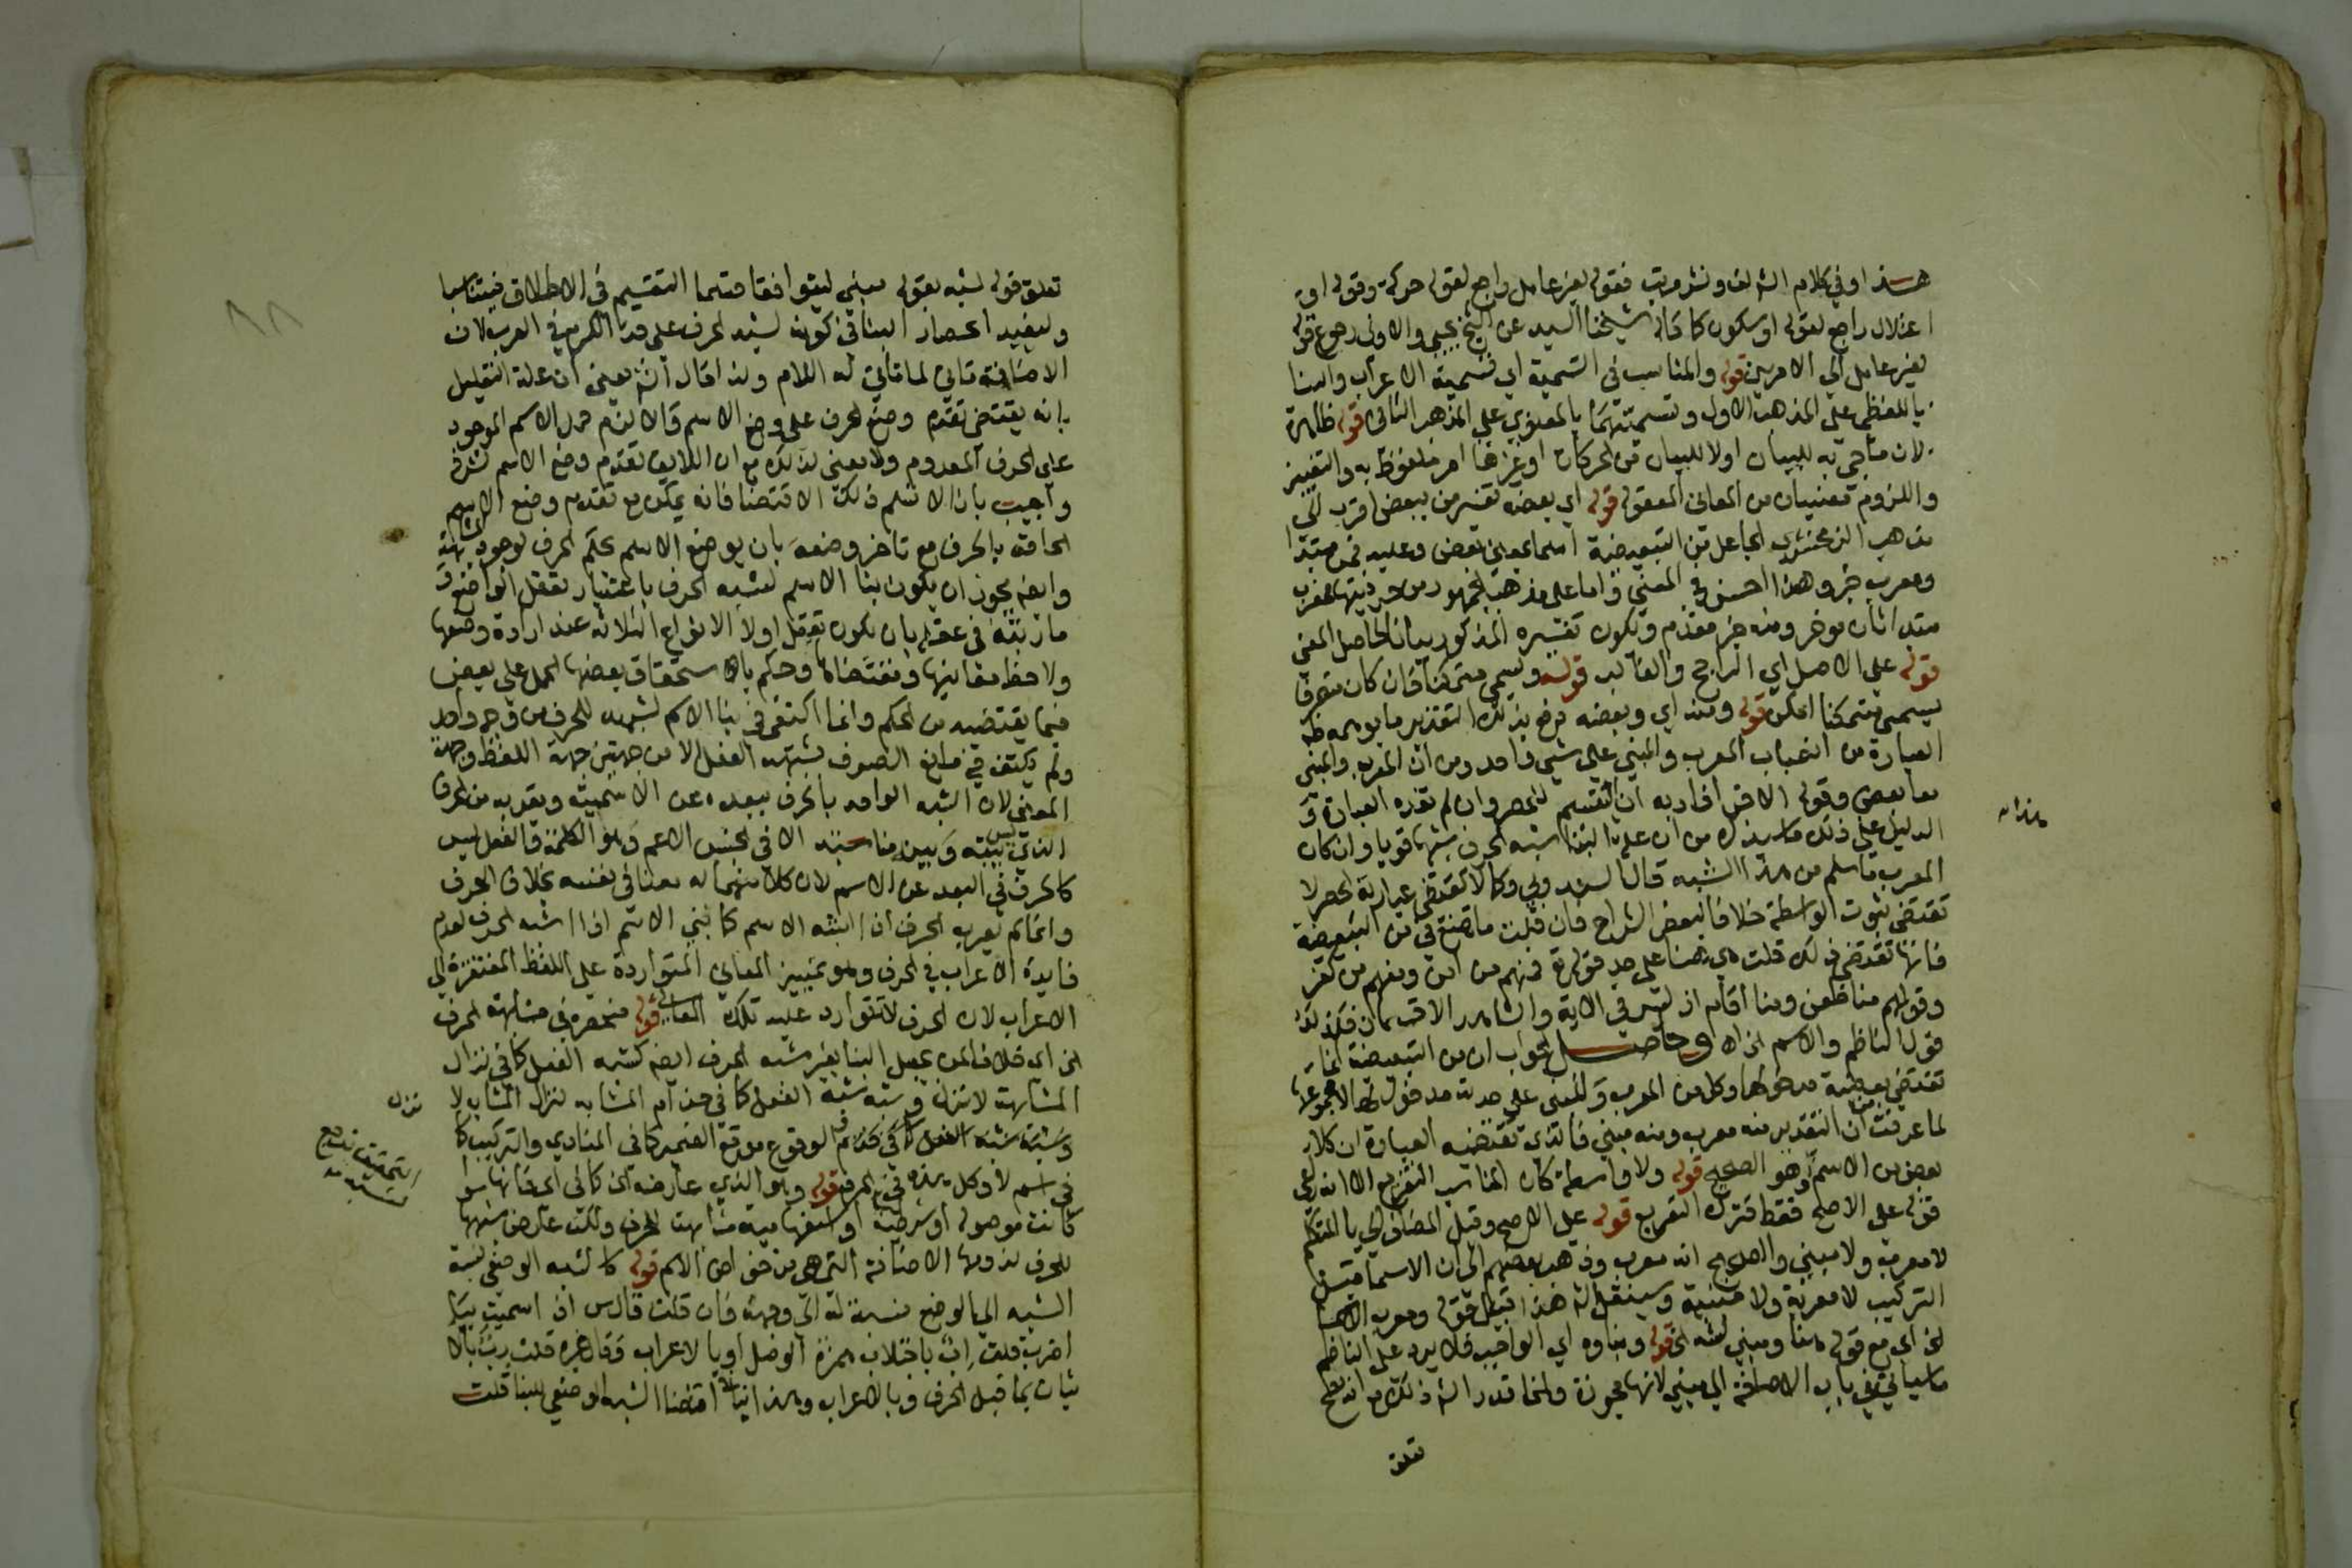 هذا وفي كلام الش لف ونشر مرتب فقوله لغير عامل راجع لقوله حركة وقوله او
اعتلال راجع لقوله او سكون كما قاله شيخنا السيد عن الشيخ يحيى والاولى رجوع قوله
لغير عامل الى الامرين قوله والمناسب في التسمية اي تسمية الاعراب والبنا
باللفظي على المذهب الاول وتسميتهما بالمعنوي على المذهب الثاني قوله ظاهرة
لان ما جيء به للبيان او لا للبيان من الحركات او غيرها امر ملفوظ به والتغيير
واللزوم معنيان من المعاني المعقولة قوله اي بعضه تفسير من ببعض اقرب الى
مذهب الزمخشري الجاعل من التبعيضية اسما بمعنى بعض وعليه فمن مبتدا
ومعرب خبر وهذا احسن في المعنى واما على مذهب الجمهور من حرفيتها فمعرب
مبتدا ثان مؤخر ومنه خبر مقدم ويكون تفسيره المذكور بيانا لحاصل المعنى
قوله على الاصل اي الراجح والغالب قوله ويسمى متمكنا فان كان منصرفا
يسمى متمكنا امكن قوله ومنه اي وبعضه دفع بذلك التقدير ما يوهمه ظ
العبارة من انصباب المعرب والمبني على شيء واحد ومن ان المعرب والمبني
معا بعض وقوله الاخر افاد به ان التقسيم للحصر وان لم تفده العبارة و
الدليل على ذلك ما سيذكره من ان علة البنا شبه الحرف شبها قويا وان كان
المعرب ما سلم من هذا الشبه قال السندوبي وكما لا تقتضي عبارته الحصر لا
تقتضي ثبوت الواسطة خلافا لبعض الشراح فان قلت ما تصنع في من التبعيضية
فانها تقتضي ذلك قلت هي هنا على حد قوله تع فمنهم من امن ومنهم من كفر
وقولهم منا ظعن ومنا اقام اذ ليس في الاية والشاهد الا قسمان فكذلك
قول الناظم والاسم الخ اه وحاصل الجواب ان من التبعيضية انما
تقتضي بعضية مدخولها وكل من المعرب والمبني على حدته مدخول لها لا مجموعهما
لما عرفت من ان التقدير منه معرب ومنه مبني فالذي تقتضيه العبارة ان كلا
بعض من الاسم وهو الصحيح قوله ولا واسطة كان المناسب التفريع الا انه راعى
قوله على الاصح فقط فترك التفريع قوله على الاصح وقيل المضاف الى يا المتكلم
لا معرب ولا مبني والصحيح انه معرب وذهب بعضهم الى ان الاسما قبل
التركيب لا معربة ولا مبنية وسينقل الش هذا قبيل قوله ومعرب الاسما
الخ اي مع قوله هنا ومبني لشبه الخ قوله وبناوه اي الواجب فلا يرد على الناظم
ما سياتي في باب الاضافة الى مبني لانها مجوزة وانما قدر الش ذلك مع انه يصح
تعلق
هذا اه
٨٨
تعلق قوله لشبه بقوله مبني ليتوافقا قسما التقسيم في الاطلاق فيتناسبا
وليفيد انحصار البنا في كونه لشبه الحرف على حد الكرم في العرب لان
الاضافة تاتي لما تاتي له اللام ولذا قال الش يعني ان علة التعليل
بانه يقتضي تقدم وضع الحرف على وضع الاسم والا لزم حمل الاسم الموجود
على الحرف المعدوم ولا معنى لذلك مع ان اللايق تقدم وضع الاسم لشرفه
واجيب بانا لا نسلم ذلك الاقتضا فانه يمكن مع تقدم وضع الاسم
الحاقه بالحرف مع تاخر وضعه بان يوضع الاسم بحكم الحرف لوجود المشابهة
وايضا يجوز ان يكون بنا الاسم لشبه الحرف باعتبار تعقل الواضع و
ما رتبه في عقله بان يكون تعقل اولا الانواع الثلاثة عند ارادة وضعها
ولاحظ معانيها ومقتضاها وحكم باستحقاق بعضها الحمل على بعض
فيما يقتضيه من الحكم وانما اكتفى في بنا الاسم بشبهه للحرف من وجه واحد
ولم يكتف في منع الصرف بشبهه الفعل الا من جهتين جهة اللفظ وجهة
المعنى لان الشبه الواحد بالحرف يبعده عن الاسمية ويقربه من الحرف
الذي ليس بينه وبين مناسبة الا في الجنس الاعم وهو الكلمة والفعل ليس
كالحرف في البعد عن الاسم لان كلا منهما له معنى في نفسه بخلاف الحرف
وانما لم يعرب الحرف اذا اشبه الاسم كما بني الاسم اذا اشبه الحرف لعدم
فايدة الاعراب في الحرف وهو تمييز المعاني المتواردة على اللفظ المفتقرة الى
الاعراب لان الحرف لا تتوارد عليه تلك المعاني قوله منحصرة في مشابهته الحرف
الخ اي خلافا لمن يجعل البنا بغير شبه الحرف ايضا كشبه الفعل كما في نزال
المشابهة لانزل وشبه شبه الفعل كما في حذام المشابه لنزال المشابه لا
وشبه شبه الفعل كما في حذام وكالوقوع موقع الضمير كما في المنادى والتركيب كما
في اسم لا وكل هذه في الحرف قوله وهو الذي عارضه الخ كما في اي فانها سوا
كانت موصولة او شرطية او استفهامية مشابهة للحرف ولكن عارض شبهها
للحرف لزومها الاضافة التي هي من خواص الاسم قوله كالشبه الوضعي نسبة
الشبه الى الوضع نسبة له الى وجهه فان قلت قال س اذا سميت ببا
اضرب قلت اب باجتلاب همزة الوصل وبالاعراب وقال غيره قلت رب بالا
تيان بما قبل الحرف وبالاعراب وهذا ينافي اقتضا الشبه الوضعي للبنا قلت
نزل